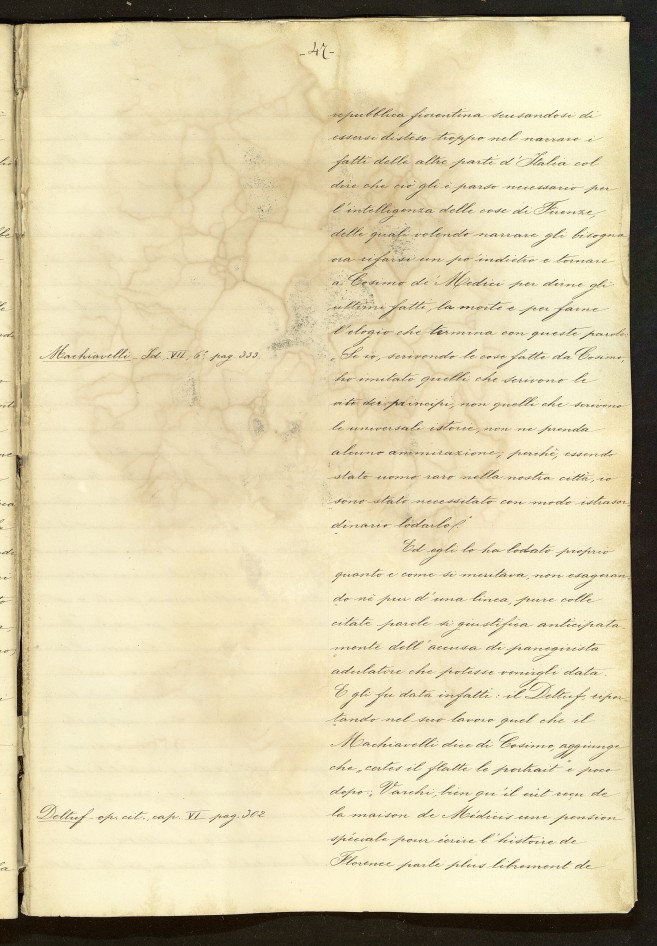 -47-
repubblica fiorentina scusandosi di
essersi disteso troppo nel narrare i
fatti delle altre parti d'Italia col
dire che ciò gli è parso necessario per
l'intelligenza delle cose di Firenze,
delle quali volendo narrare gli bisogna
ora rifarsi un po' indietro e tornare
a Cosimo de' Medici per dirne gli
ultimi fatti, la morte e per farne
l'elogio che termina con queste parole
Machiavelli - Id. VII, 6º, pag. 333.
„Se io, scrivendo le cose fatte da Cosimo,
ho imitato quelli che scrivono le
vite dei principi, non quelli che scrivono
le universali istorie, non ne prenda
alcuno ammirazione, perchè, essendo
stato uomo raro nella nostra città, io
sono stato necessitato con modo istraor
dinario lodarlo".
Ed egli lo ha lodato proprio
quanto e come si meritava, non esageran
do nè pur d'una linea, pure colle
citate parole si giustifica anticipata
mente dell'accusa di panegirista
adulatore che potesse venirgli data.
E gli fu data infatti: il Deltuf, ripor
tando nel suo lavoro quel che il
Machiavelli dice di Cosimo, aggiunge
che „certes il flatte le portrait" e poco
dopo „Varchi, bien qu'il eût reçu de
Deltuf - op. cit., cap. VI pag. 302
la maison de Médicis une pension
spéciale pour écrire l'histoire de
Florence parle plus librement de